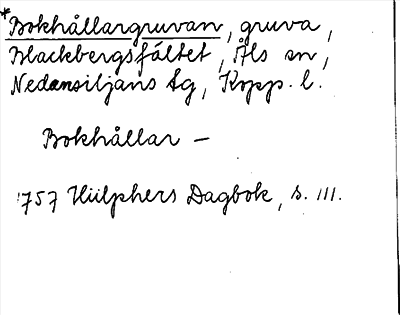 *Bokhållargruvan, gruva,
Blackbergsfältet, Åls sn,
Nedansiljans tg, Kopp. l.
Bokhållar –
1757 Hülphers Dagbok, s. 111.